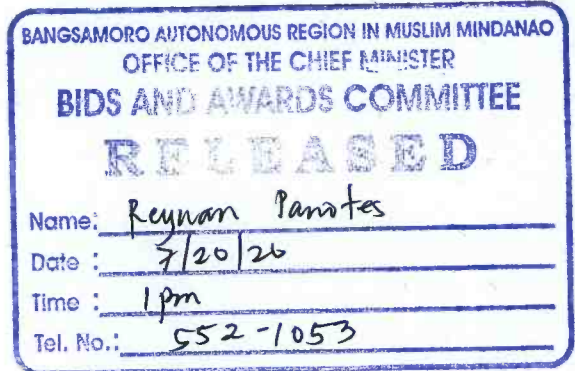 BANGSAMORO AUTONOMOUS REGION IN MUSLIM MINDANAO
OFFICE OF THE CHIEF MINISTER
BIDS AND AWARDS COMMITTEE
RELEASED
Name: Reynan Panotes
Date : 7/20/20
Time : 1pm
Tel. No.: 552-1053